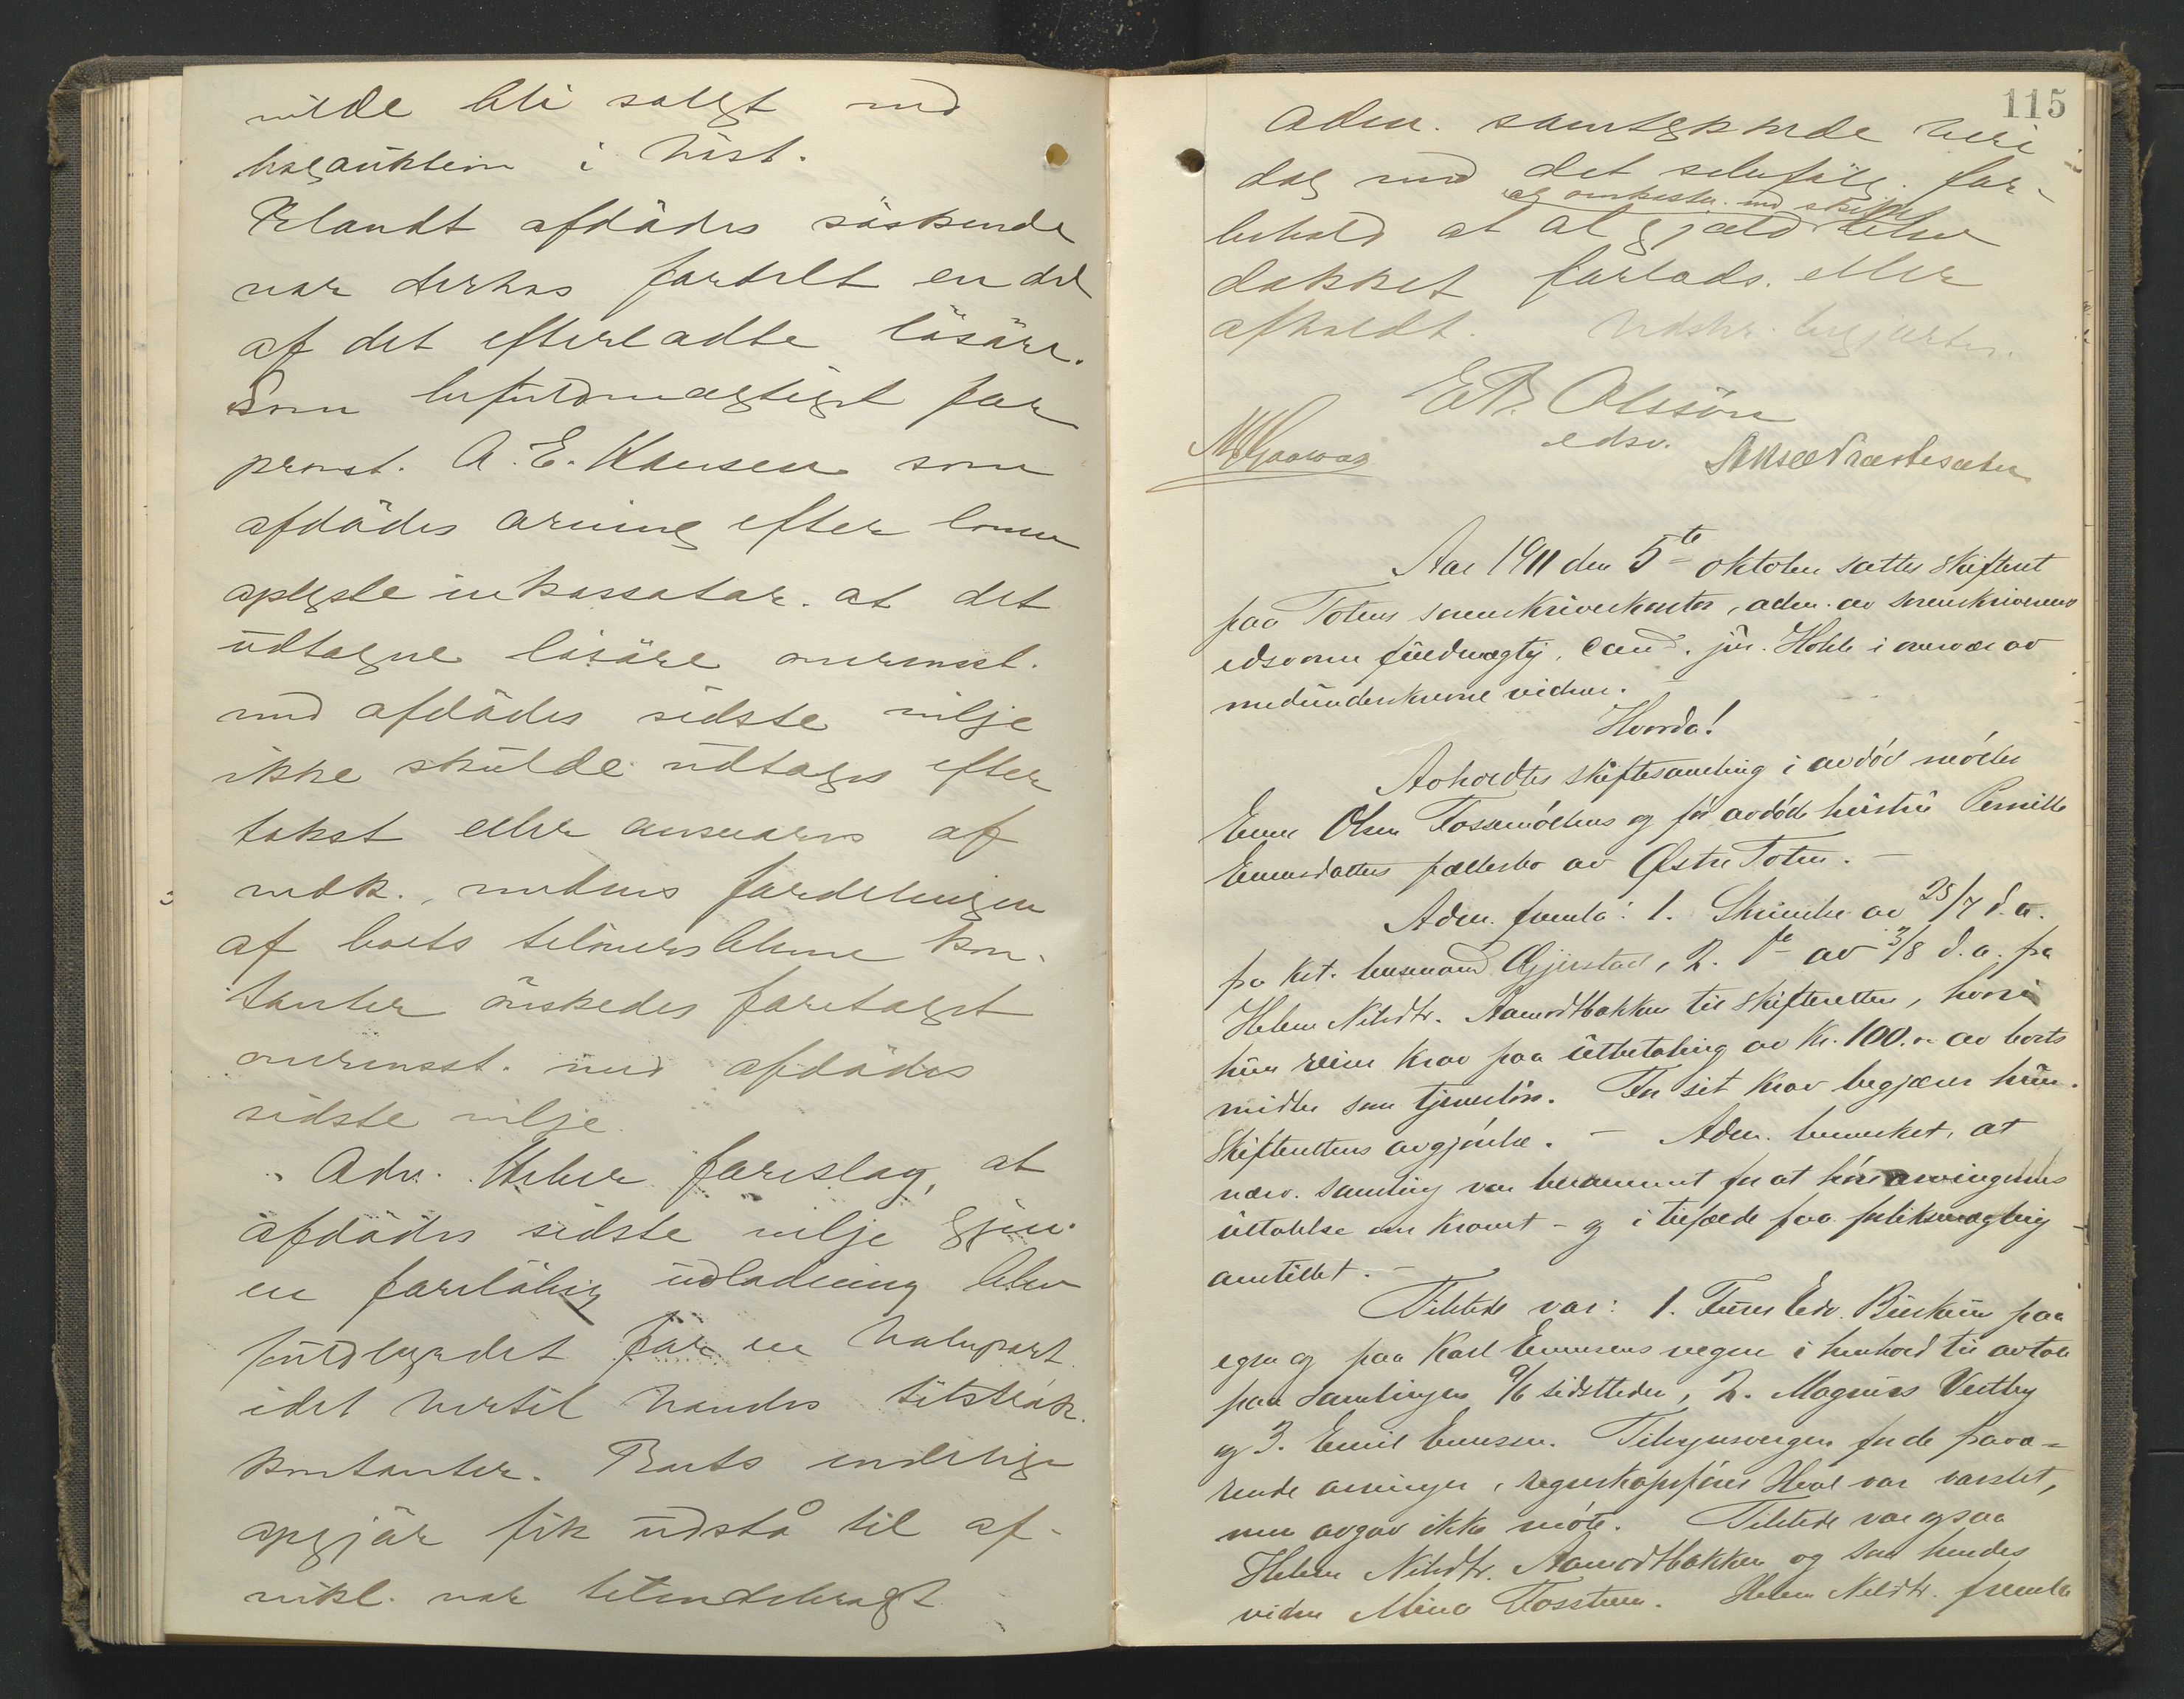 vilde bli solgt ved
bogauktion i höst.
Blandt afdödes söskende
var derhos fordelt en del
af det efterladte lösöre.
Som befuldmægtiget for
provst. A. E. Hansen som
afdödes arving efter loven
oplyste inkassator. at det
udtagne lösöre overensst.
med afdödes sidste vilje
ikke skulde udtages efter
takst eller ansvares af
vedk., medens fordelingen
af boets tiloversblevne kon-
tanter önskedes foretaget
overensst. med afdödes
sidste vilje.
Adv. Heber foreslog, at
afdödes sidste vilje gjen.
en foreløbig udlodning blev
fuldbyrdet for en halvpart
idet hertil havdes tilstræk.
kontanter. Boets endelige
opgjör fik udstå til af-
vikl. var tilendebragt
115
Adm. samtykkede heri
dog med det selvfølg. for-
og omkostn. ved skiftet
behold at al gjæld blev
dækket forlods. eller
afholdt. Udskr. begjærtes.
E.B. Olssön
edsv.
Aar 1911 den 5te oktober sattes skifteret
paa Totens sorenskriverkontor, adm. av sorenskriverens
edsvorne fuldmægtig, cand. jur. Holth i overvær av
medunderskrevne vidner.
Hvorda!
Avholdtes skiftesamling i avdöd möller
Even Olsen Fossemöllens og før avdöde hustru Pernille
Evensdatters fællesbo av Østre Toten. —
Adm. fremla: 1. Skrivelse av 25/7 d.a.
fra kst. lensmand Gjerstad, 2. do av 3/8 d.a. fra
Helene Nilsdtr. Aamodtbakken til skifteretten, hvori
hun reiser krav paa utbetaling av kr. 100.00 av boets
midler som tjenerløn. For sit krav begjærer hun
skifterettens avgjörelse. — Adm. bemerket, at
nærv. samling var berammet for at höre arvingernes
uttalelse om kravet – og i tilfælde faa forliksmægling
anstillet. —
Tilstede var: 1. Edv. paa
egen og paa Karl Evensens vegne i henhold til avtale
paa samlingen 9/6 sidstleden, 2. Magnus Vestby
og 3. Emil Evensen. Tilsynsvergen for de fravæ-
rende arvinger, regnskapsfører Hval var varslet,
men avgav ikke møte. Tilstede var ogsaa
Helene Nilsdtr. Aamodtbakken og som hendes
vidne Mina Fossteen. Helene Nilsdtr. fremla